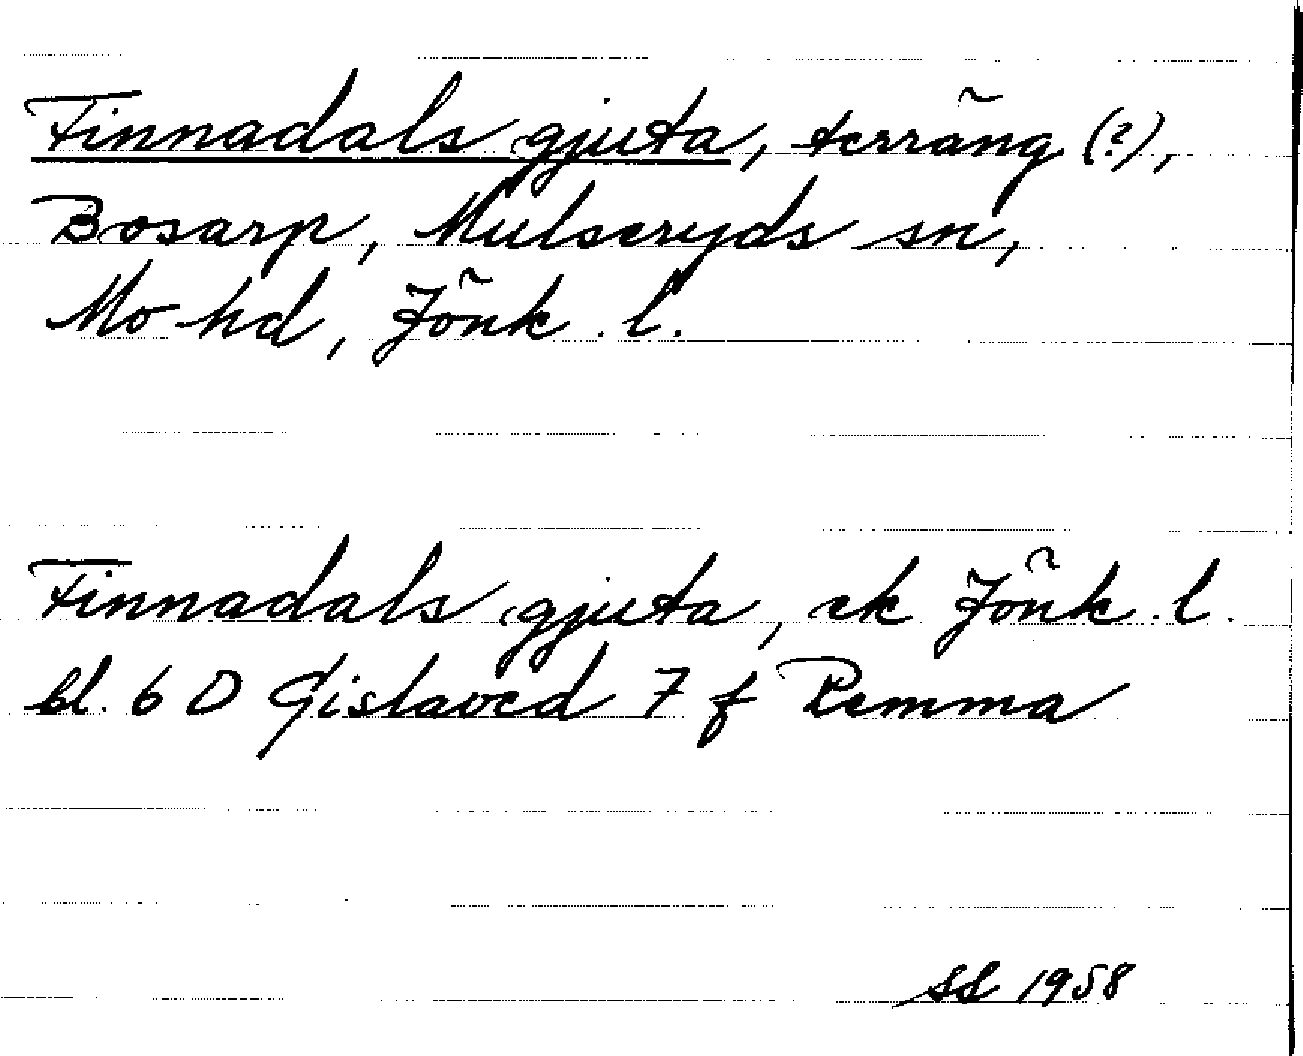 Finnadals gjuta, terräng (?),
Bosarp, Mulseryds sn,
Mo hd, Jönk. l.
Finnadals gjuta, ek Jönk. l.
bl. 6 D Gislaved 7 f Remma
SL 1958